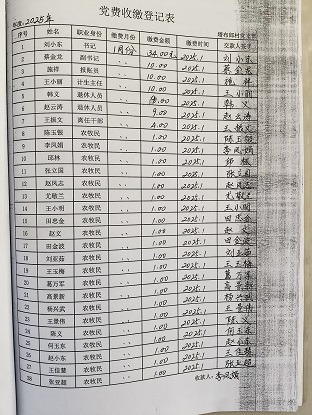 党费收缴登记表
年度：2025年
序号 姓名 职业身份 缴费月份 缴费金额 缴费时间 交款人签字
1 刘小东 书记 1月份 34.00元 2025.1 刘小东
2 蔡金龙 副书记 〃 10.00 2025.1 蔡金龙
3 施祥 报账员 〃 10.00 2025.1 施祥
4 王小丽 计生主任 〃 10.00 2025.1 王小丽
5 韩义 退休人员 〃 2025.1 韩义
6 赵云涛 退休人员 〃 9.00 2025.1 赵云涛
7 王振文 离任干部 〃 4.00 2025.1 王振文
8 陈玉银 农牧民 〃 1.00 2025.1 陈玉银
9 李凤娟 农牧民 〃 1.00 2025.1 李凤娟
10 邱林 农牧民 〃 1.00 2025.1 邱林
11 张立国 农牧民 〃 1.00 2025.1 张立国
12 赵凤志 农牧民 〃 1.00 2025.1 赵凤志
13 尤敬兰 农牧民 〃 1.00 2025.1 尤敬兰
14 王小明 农牧民 〃 1.00 2025.1 王小明
15 田忠金 农牧民 〃 1.00 2025.1 田忠金
16 赵文 农牧民 〃 1.00 2025.1 赵文
17 田金波 农牧民 〃 1.00 2025.1 田金波
18 刘亚茹 农牧民 〃 1.00 2025.1 刘亚茹
19 王玉梅 农牧民 〃 1.00 2025.1 王玉梅
20 葛万军 农牧民 〃 1.00 2025.1 葛万军
21 高景新 农牧民 〃 1.00 2025.1 高景新
22 杨兴武 农牧民 〃 1.00 2025.1 杨兴武
23 王景伟 农牧民 〃 1.00 2025.1 王景伟
24 陈义 农牧民 〃 1.00 2025.1 陈义
25 何玉东 农牧民 〃 1.00 2025.1 何玉东
26 赵小东 农牧民 〃 1.00 2025.1 赵小东
27 王佳慧 农牧民 〃 1.00 2025.1 王佳慧
28 张亚超 农牧民 〃 1.00 2025.1 张亚超
收款人：李凤娟